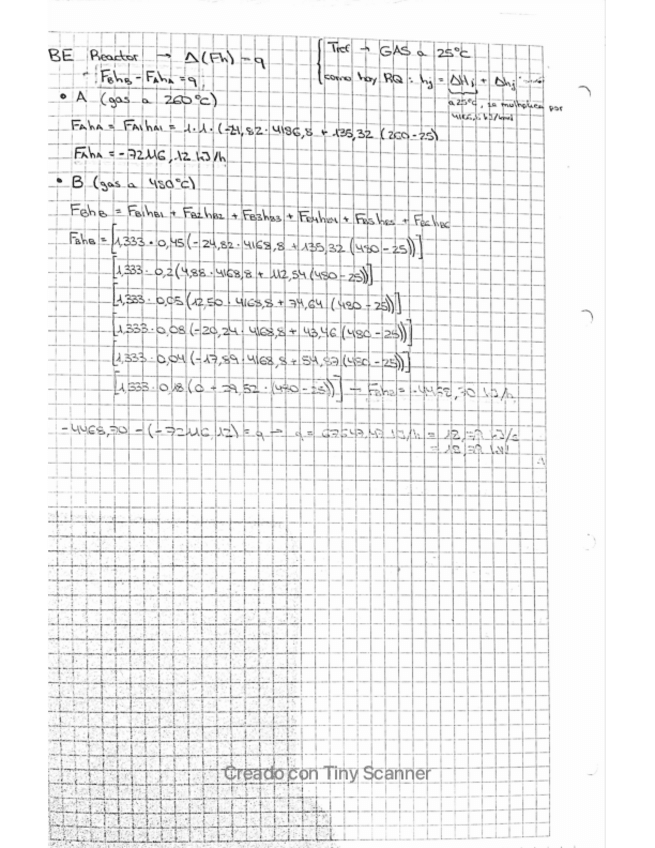 BE Reactor → Δ(Fh) = q
FBhB - FAhA = q
Tref → GAS a 25°C
como hay RQ: hj = ΔHj + Δhj
a 25°C, se multiplica por
• A (gas a 260°C)
FAhA = FA1hA1 = 1·1·(-21,82·4186,8 + 135,32 (260-25)
FAhA = -72116,12 kJ/h
• B (gas a 480°C)
FBhB = FB1hB1 + FB2hB2 + FB3hB3 + FB4hB4 + FB5hB5 + FB6hB6
FBhB = [1,333·0,45(-24,82·4168,8 + 135,32(480-25))]
[1,333·0,2(4,88·4168,8 + 112,54(480-25))]
[1,333·0,05(12,50·4168,8 + 74,64(480-25))]
[1,333·0,08(-20,24·4168,8 + 43,46(480-25))]
[1,333·0,04(-17,89·4168,8 + 54,93(480-25))]
[1,333·0,18(0 + 29,52·(480-25))] →
-4468,70 - (-72116,12) = q → q = 67647,42 kJ/h =
Creado con Tiny Scanner